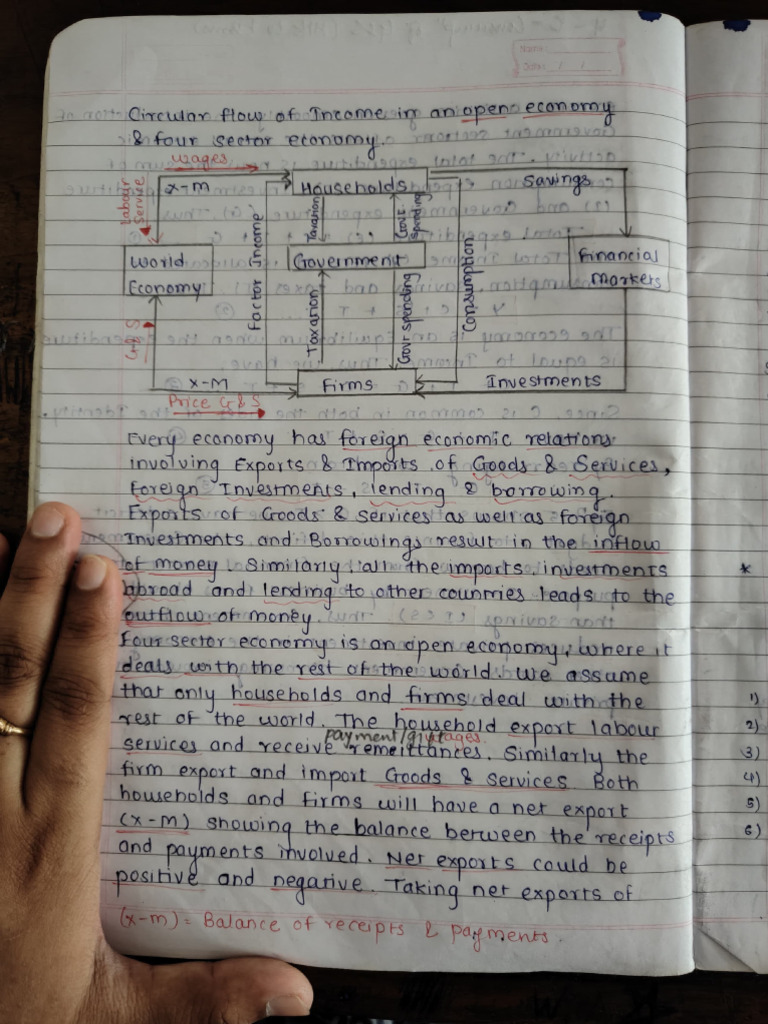 Circular flow of Income in an open economy
& four sector economy.
wages
x-m
Households
Savings
Labour
Service
Factor Income
Taxation
Govt
Spending
Consumption
World
Economy
Government
Financial
Markets
G&S
Taxation
Govt spending
x-M
Firms
Investments
Price G & S
Every economy has foreign economic relations
involving Exports & Imports of Goods & Services,
foreign Investments, lending & borrowing.
Exports of Goods & Services as well as foreign
Investments and Borrowings result in the inflow
of money. Similarly all the imports, investments
abroad and lending to other countries leads to the
outflow of money.
Four sector economy is an open economy, where it
deals with the rest of the world. We assume
that only households and firms deal with the
rest of the world. The household export labour
payment/
services and receive remeittances. Similarly the
firm export and import Goods & Services Both
households and firms will have a net export
(x-m) showing the balance between the receipts
and payments involved. Net exports could be
positive and negative. Taking net exports of
(x-m) = Balance of receipts & payments.
*
1)
2)
3)
4)
5)
6)